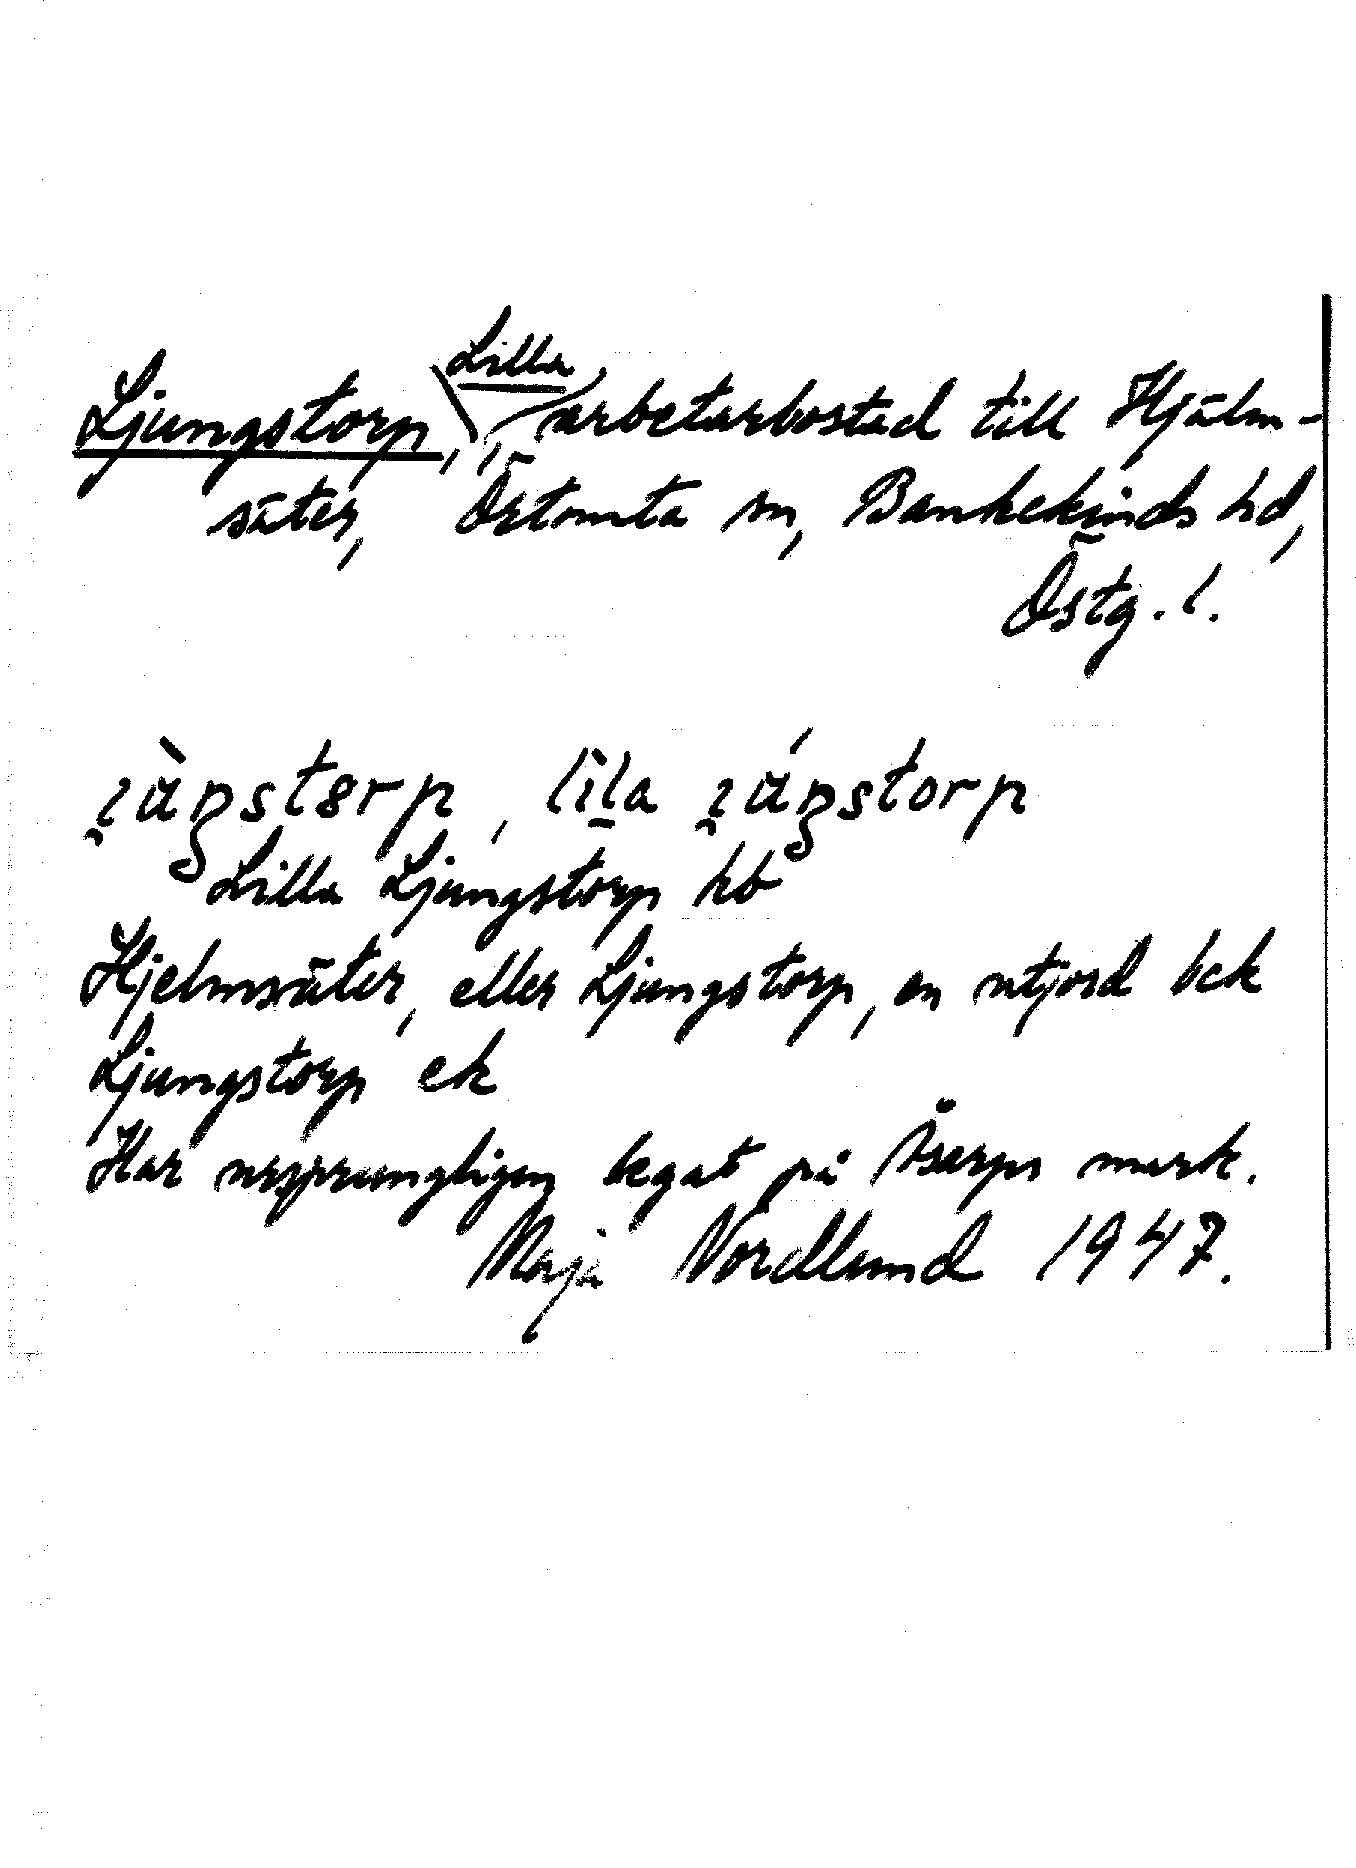 Ljungstorp, Lilla, arbetarbostad till Hjälm-
säter, Örtomta sn, Bankekinds hd,
Östg. l.
lila
Lilla Ljungstorp hb
Hjelmsäter, eller Ljungstorp, en utjord bck
Ljungstorp ek
Har ursprungligen legat på Åserps mark.
Maja Nordlund 1947.